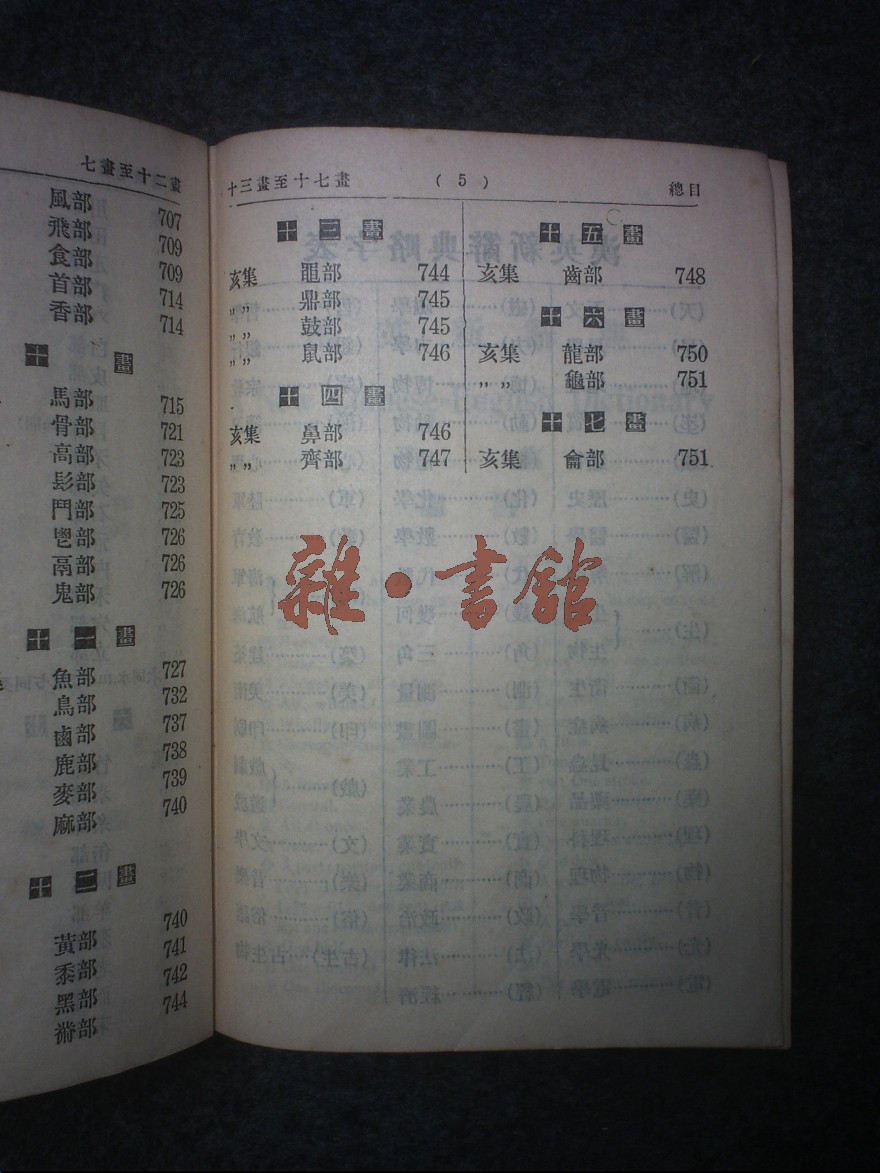 七畫至十二畫
風部 707
飛部 709
食部 709
首部 714
香部 714
十畫
馬部 715
骨部 721
高部 723
髟部 723
鬥部 725
鬯部 726
鬲部 726
鬼部 726
十一畫
魚部 727
鳥部 732
鹵部 737
鹿部 738
麥部 739
麻部 740
十二畫
黃部 740
黍部 741
黑部 742
黹部 744
十三畫至十七畫 (5) 總目
十三畫
亥集 黽部 744
〃〃 鼎部 745
〃〃 鼓部 745
〃〃 鼠部 746
十四畫
亥集 鼻部 746
〃〃 齊部 747
十五畫
亥集 齒部 748
十六畫
亥集 龍部 750
〃〃 龜部 751
十七畫
亥集 龠部 751
雜·書館